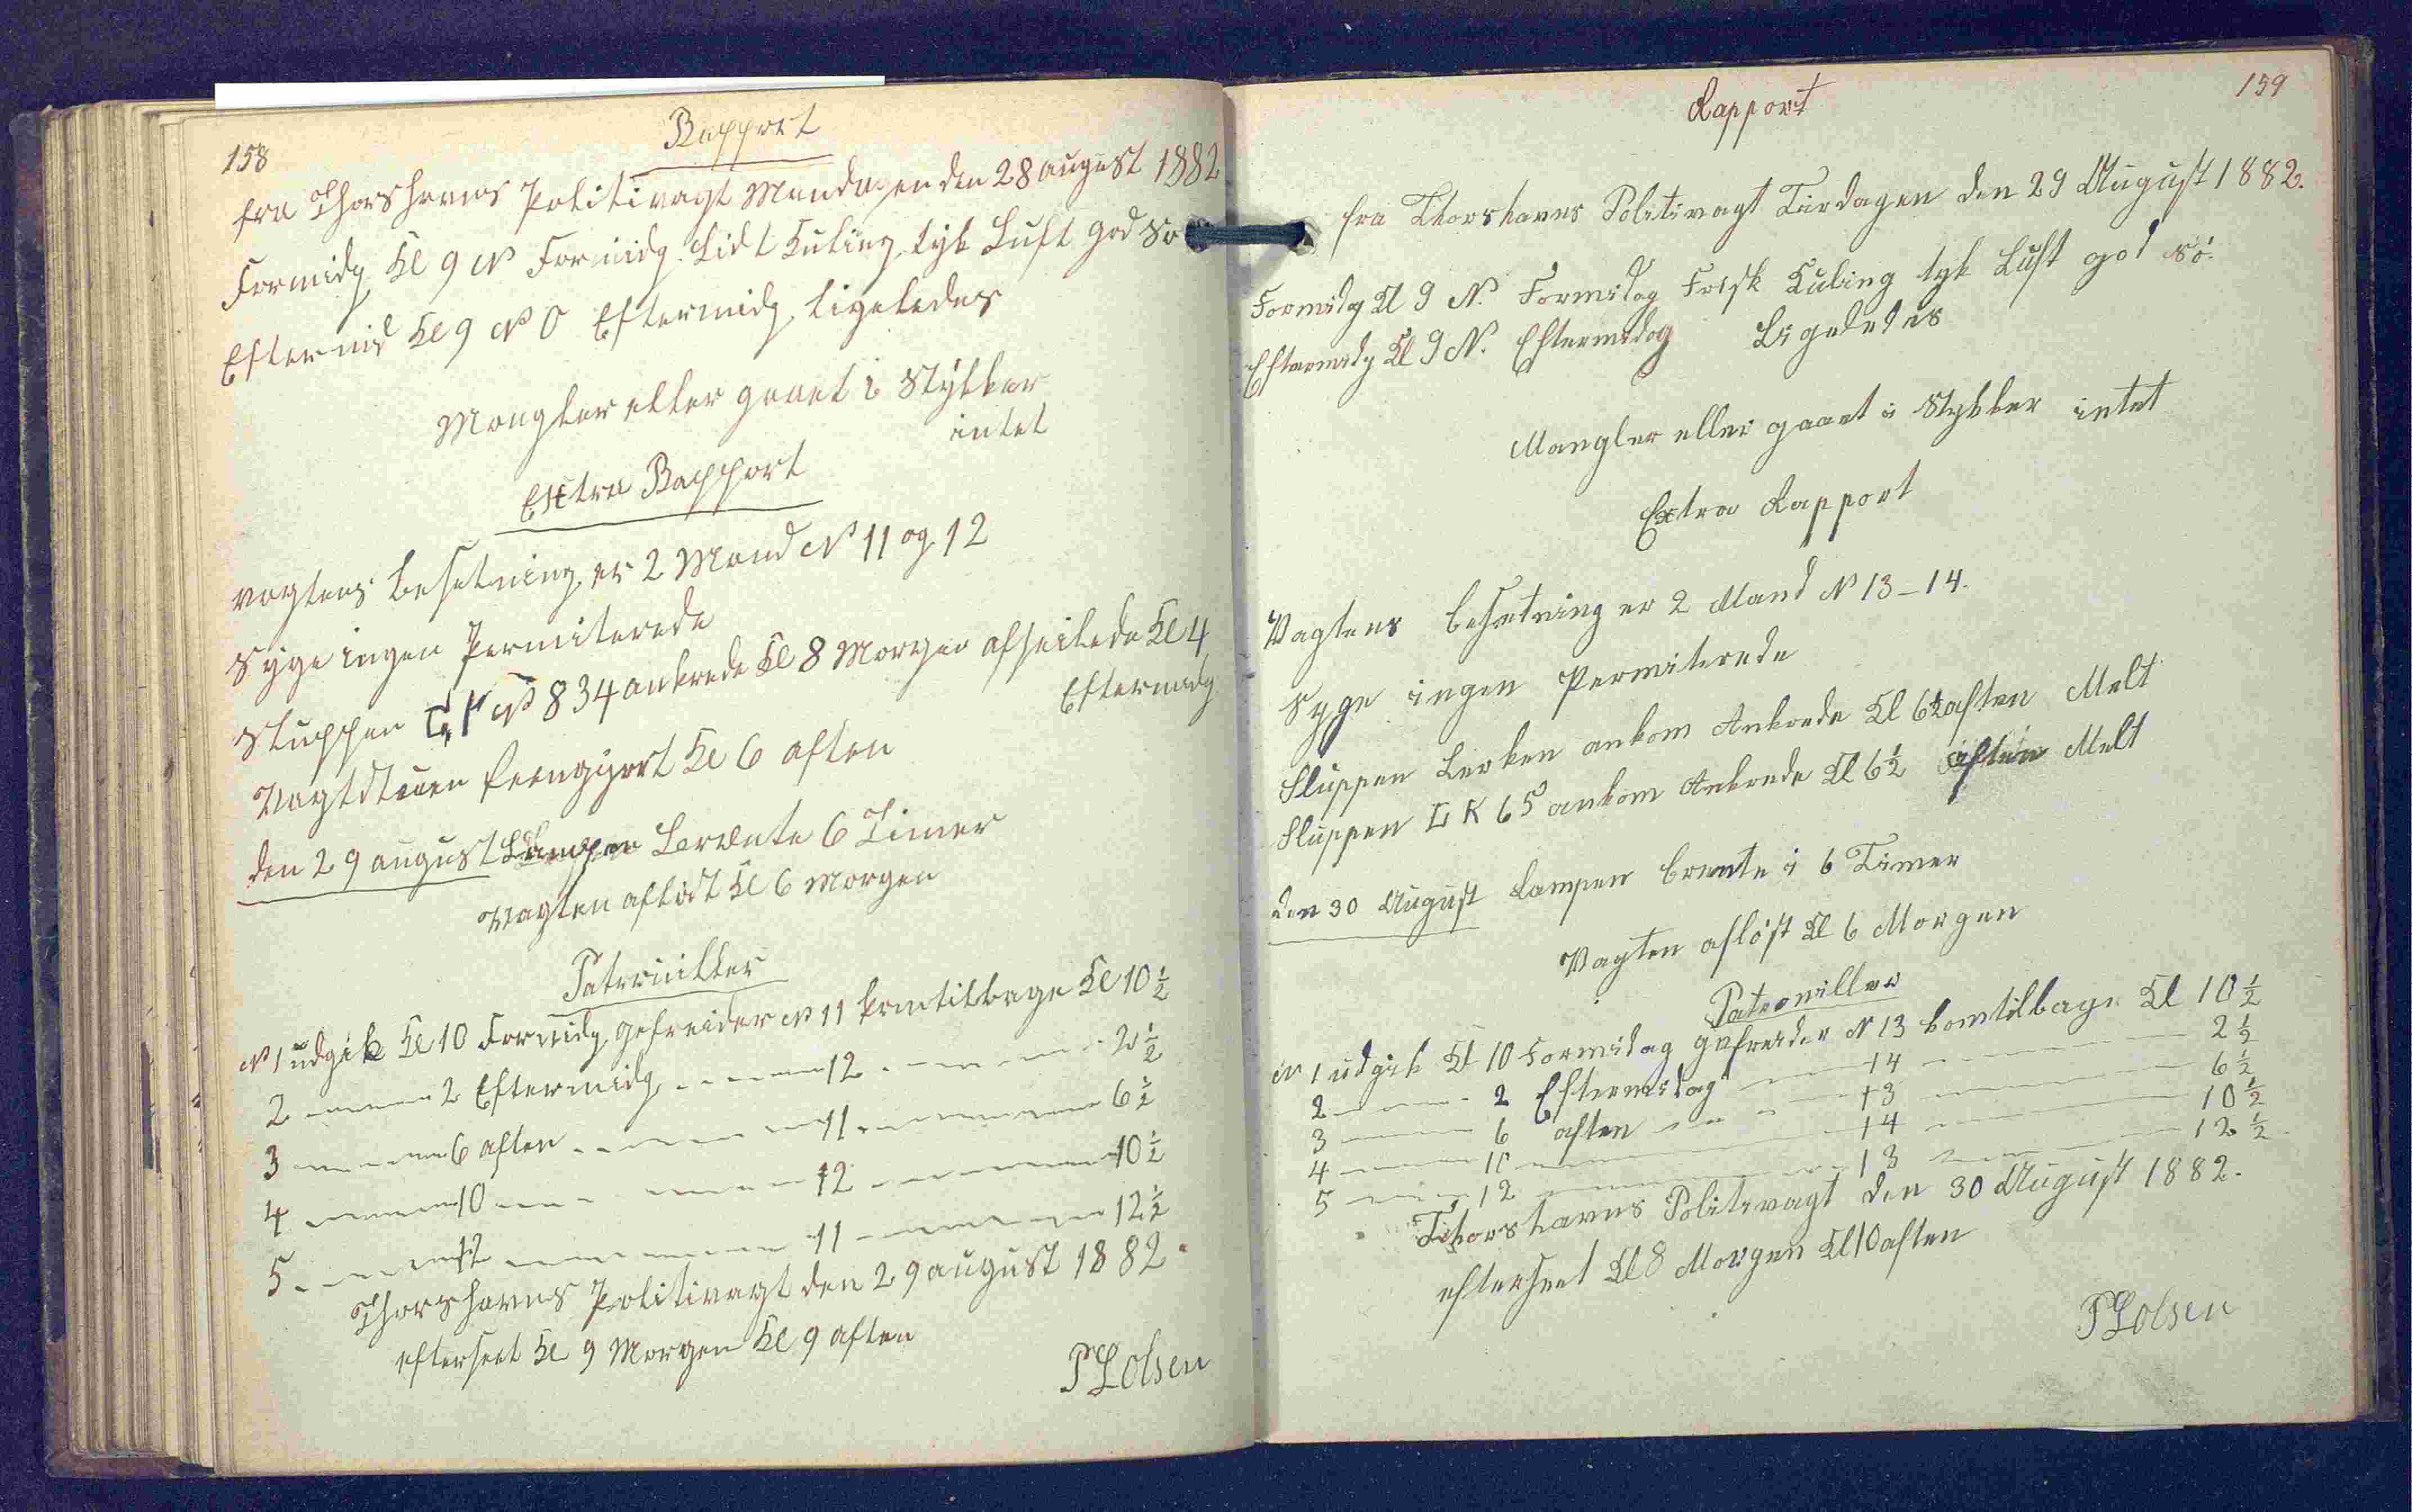 158
Rapport
fra Thorshavns Politivagt Mandagen den 28 august 1882
Formidg Kl 9 N Formidg. Lidt Kuling tyk Luft god Sø
Eftermid Kl 9 N O Eftermidg. ligeledes
Mangler eller gaaet i Stÿkker
intet
Extra Rapport
vagtens besetning er 2 Mand N 11 og 12
Syge ingen Permiterede
Sluppen N 834 ankrede Kl 8 Morgen afseilede Kl 4
Eftermidg
Vagtstuen reengjort Kl 6 aften
den 29 august Lampen Brænte 6 Timer
Vagten afløst Kl 6 Morgen
Patrouiller
N 1 udgik Kl 10 Formidg. gefreider N 11 komtilbage Kl 10 ½
2 — 2 Eftermidg. — 12 — 2 ½
3 — 6 aften — 11 — 6 ½
4 — 10 — 12 — 10 ½
5 — 12 — 11 — 12 ½
Thorshavns Politivagt den 29 august 1882.
efterseet Kl 9 Morgen Kl 9 aften
P L Olsen
159
Rapport
fra Thorshavns Politivagt Tirdagen den 29 August 1882.
Formidg Kl 9 N. Formidag Frisk Kuling tyk Luft god Sø.
Eftermidg Kl 9 N. Eftermidag Ligeledes
Mangler eller gaaet i Stykker intet
Extra Rapport
Vagtens besetning er 2 Mand N 13–14.
Syge ingen Permiterede
Sluppen Lerken ankom Ankrede Kl 6½ aften Melt
Sluppen L K 65 ankom Ankrede Kl 6½ aften Melt
den 30 August Lampen brente i 6 Timer
Vagten afløst Kl 6 Morgen
Patrouiller
N 1 udgik Kl 10 Formidag gefreider N 13 komtilbage Kl 10 ½
2 — 2 Eftermidag — 14 — 2 ½
3 — 6 aften — 13 — 6 ½
4 — 10 — 14 — 10 ½
5 — 12 — 13 — 12 ½
Thorshavns Politivagt den 30 August 1882.
efterseet Kl 8 Morgen Kl 10 aften
P L Olsen